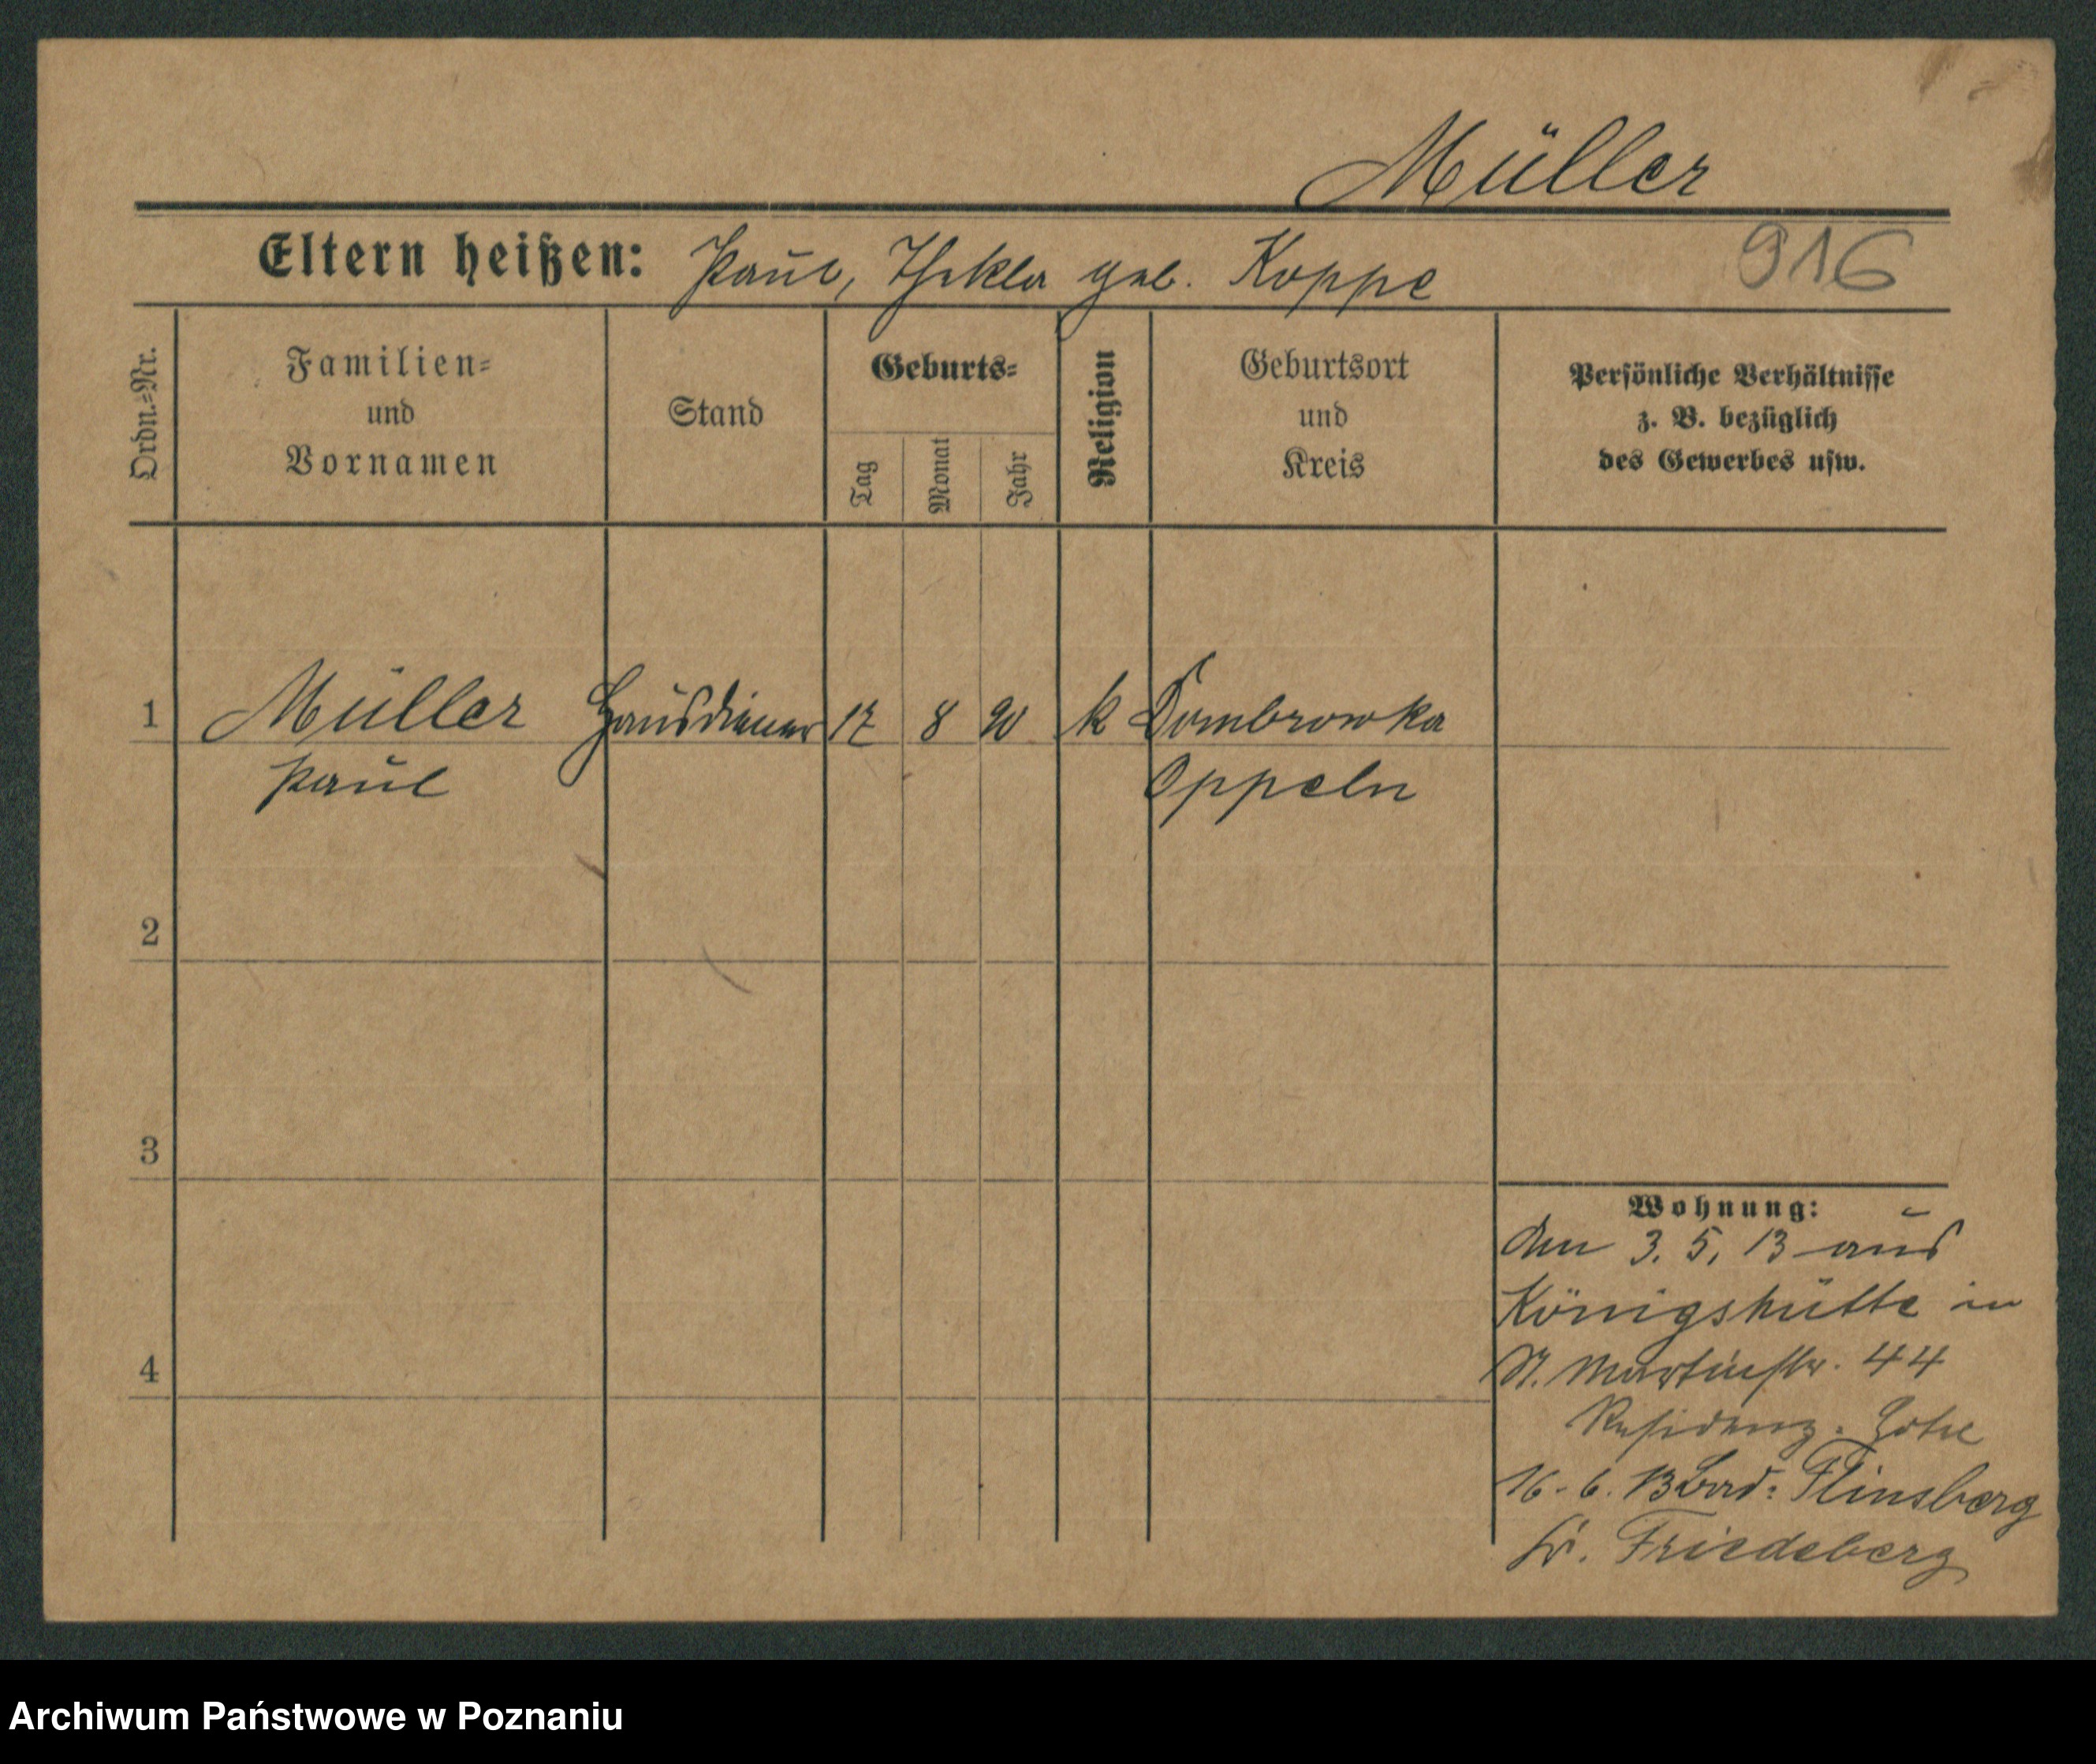 Müller
Eltern heißen: Paul, Thekla geb. Koppe 916
Ordn.-Nr.
Familien-
und
Vornamen
Stand
Geburts-
Tag
Monat
Jahr
Religion
Geburtsort
und
Kreis
Persönliche Verhältnisse
z. B. bezüglich
des Gewerbes usw.
1 Müller Hausdiener 17 8 90 k Dombrowka
Paul Oppeln
2
3
4
Wohnung:
den 3. 5. 13 aus
Königshütte in
St. Martinstr. 44
Residenz-Hotel
16. 6. 13 Bad-Flinsberg
Kr. Friedeberg
Archiwum Państwowe w Poznaniu